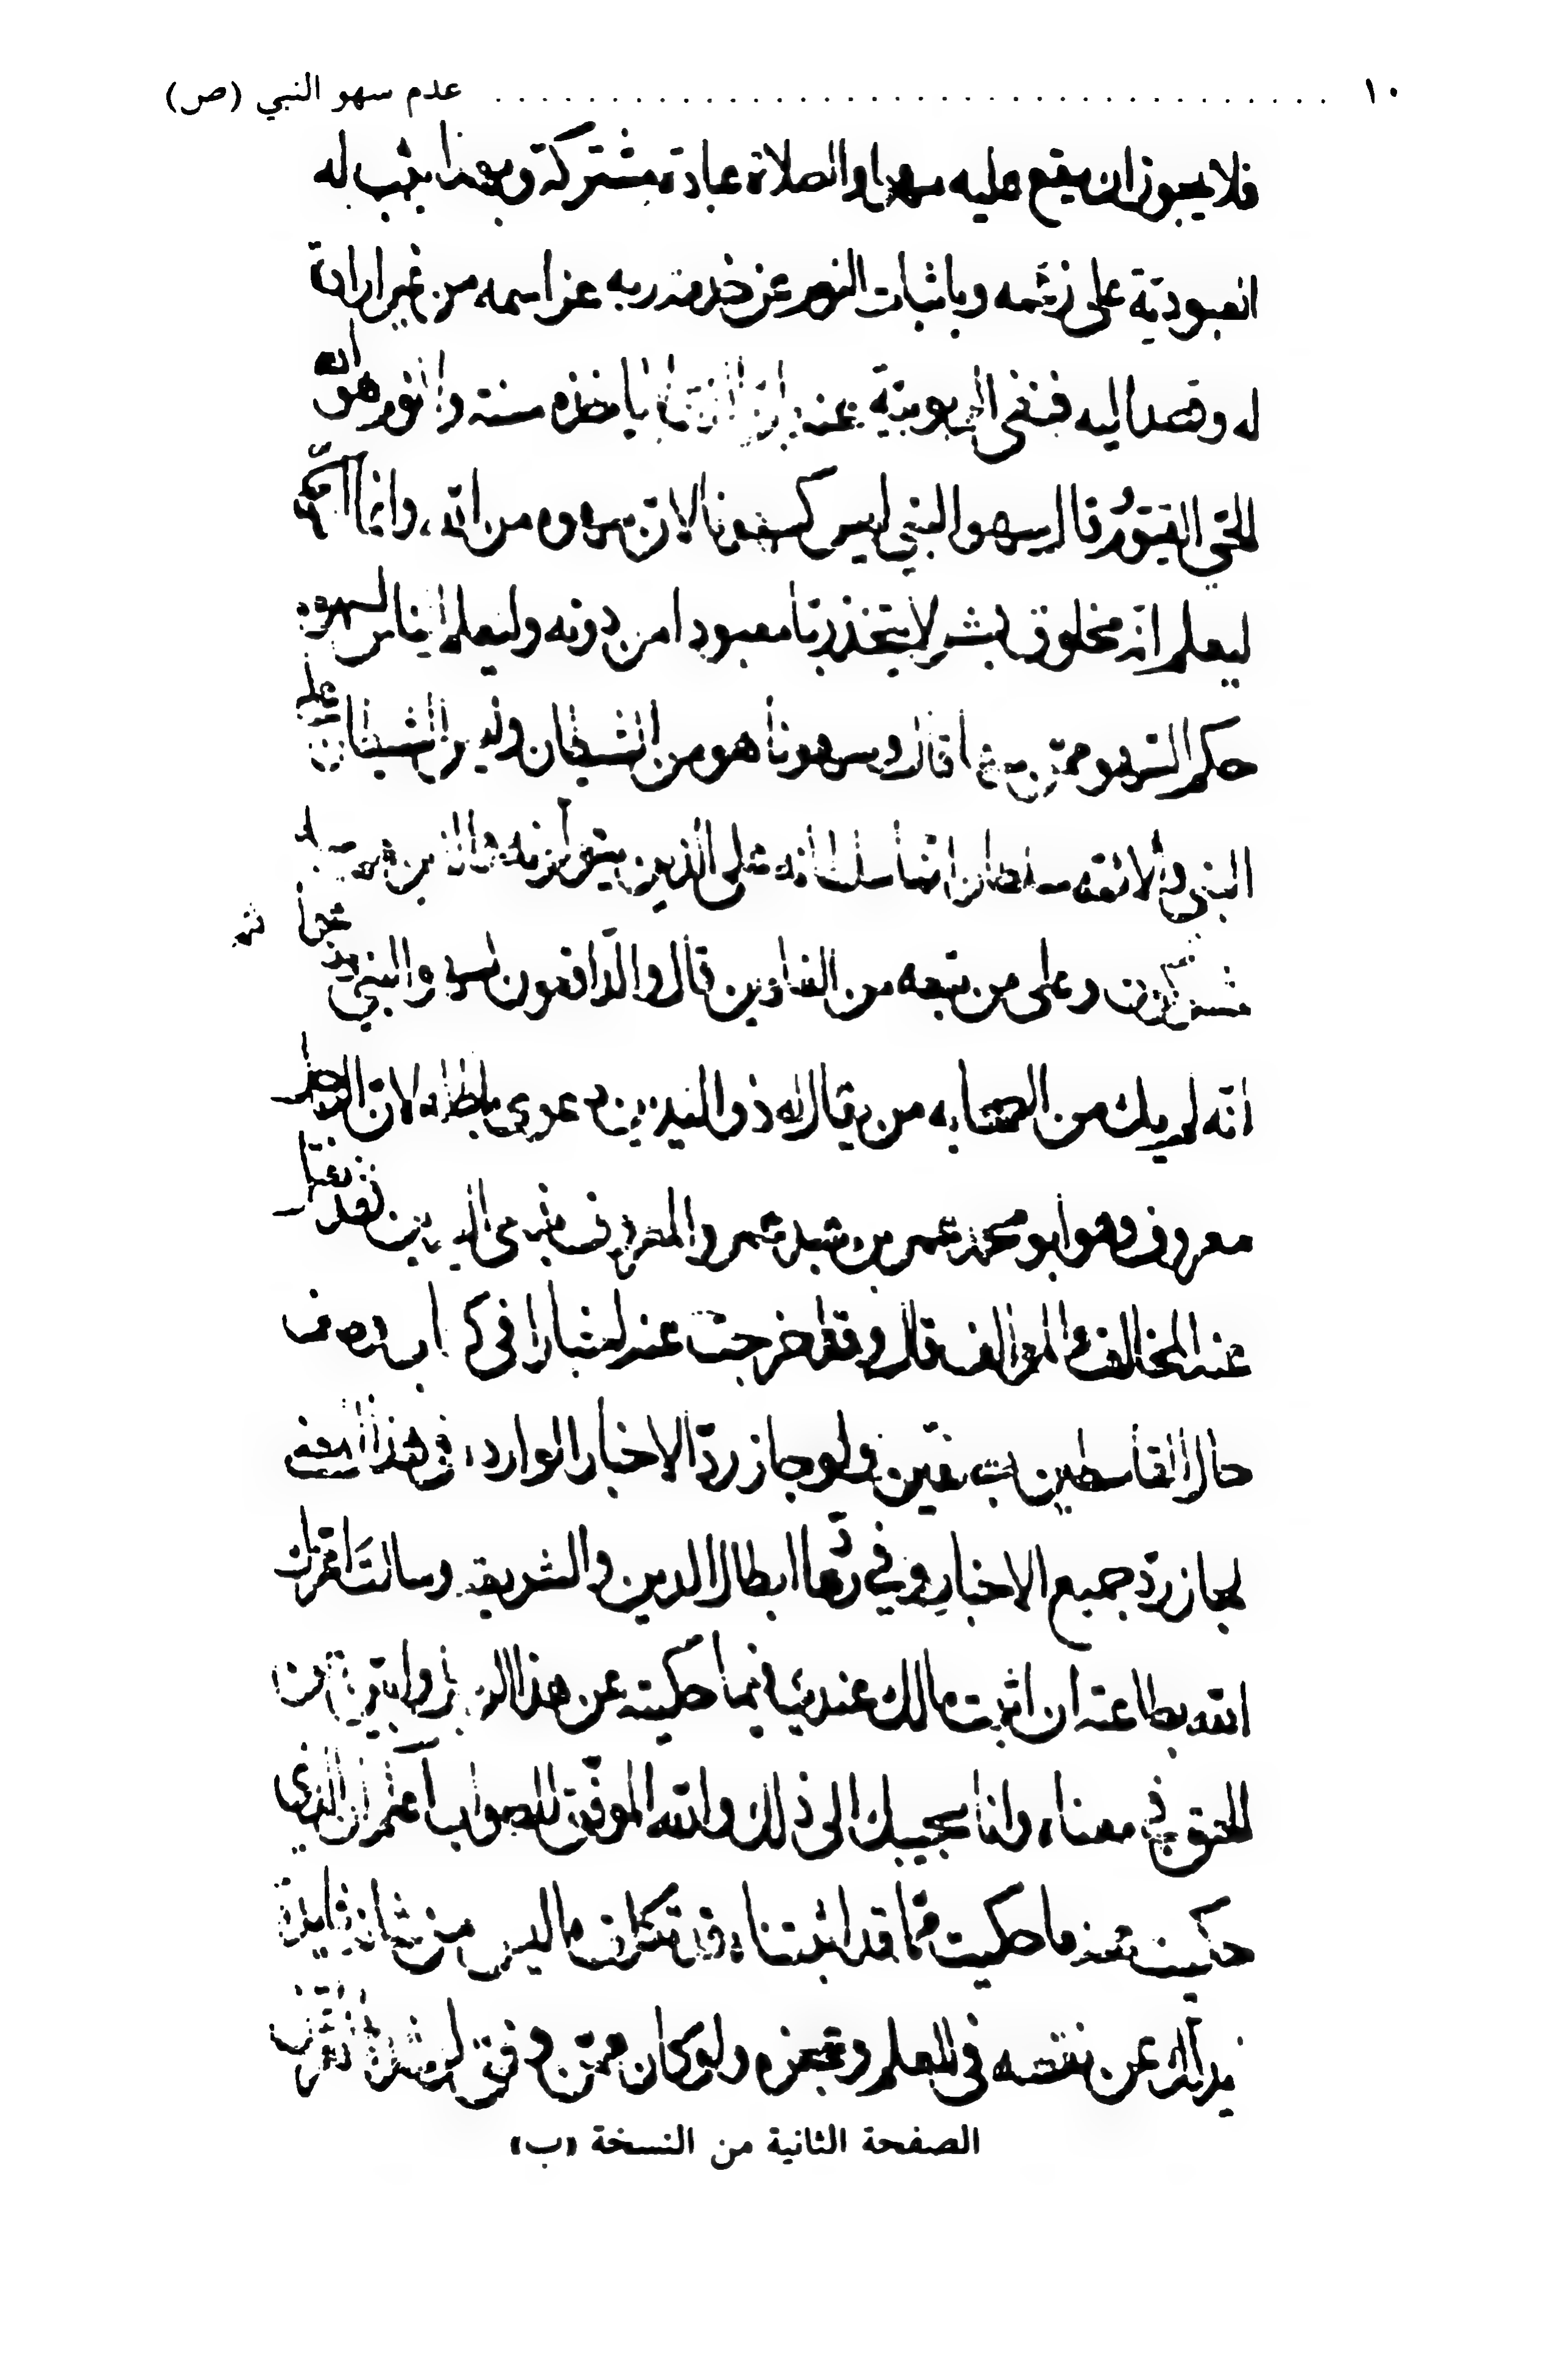 ١٠ ........................ عدم سهو النبي (ص)
فلا يجوز ان يقع عليه سهوا والصلاة عبادة مشتركة وبهذا يثبت له
العبودية على زعمه وباثبات النوم عن خدمة ربه عز اسمه من غير ارادة
له وقصد اليه فنفى الربوبية عنه لا تأخذه سنة ولا نوم هو الله
الحي القيوم قال سهو النبي ليس كسهونا لان سهوه من الله وانما
ليعلم انه مخلوق بشر لا يتخذ ربا معبودا من دونه وليعلم الناس بسهوه
حكم السهو متى سهوا قال وسهونا هو من الشيطان وليس للشيطان على
النبي والائمة سلطان انما سلطانه على الذين يتولونه والذين هم به
مشركون وعلى من تبعه من الغاوين قال والدافعون لسهو النبي
انه لم يك من الصحابة من يقال له ذو اليدين دعوى باطلة لان الرجل
معروف وهو ابو محمد عمير بن عبد عمرو المعروف بذي اليدين فقد نقل
عند المخالف والموالف قال وقد اخرجت عنه اخبارا في كتاب وصف
حال القاسطين بصفين ولو جاز رد الاخبار الواردة في هذا المعنى
لجاز رد جميع الاخبار وفي ردها ابطال الدين والشريعة وسالت اعزك
الله بطاعته ان اثبت لك عندي فيما حكيته عن هذا الرجل وابين عن
الحق في معناه وانا مجيبك الى ذلك والله الموفق للصواب اعلم ان الذي
حكيت عنه ما حكيت مما قد اثبتناه قد تكلف ما ليس من شانه فابدى
بذلك عن نقصه في العلم وعجزه ولو كان ممن وفق لرشده لما تعرض
الصفحة الثانية من النسخة «ب»